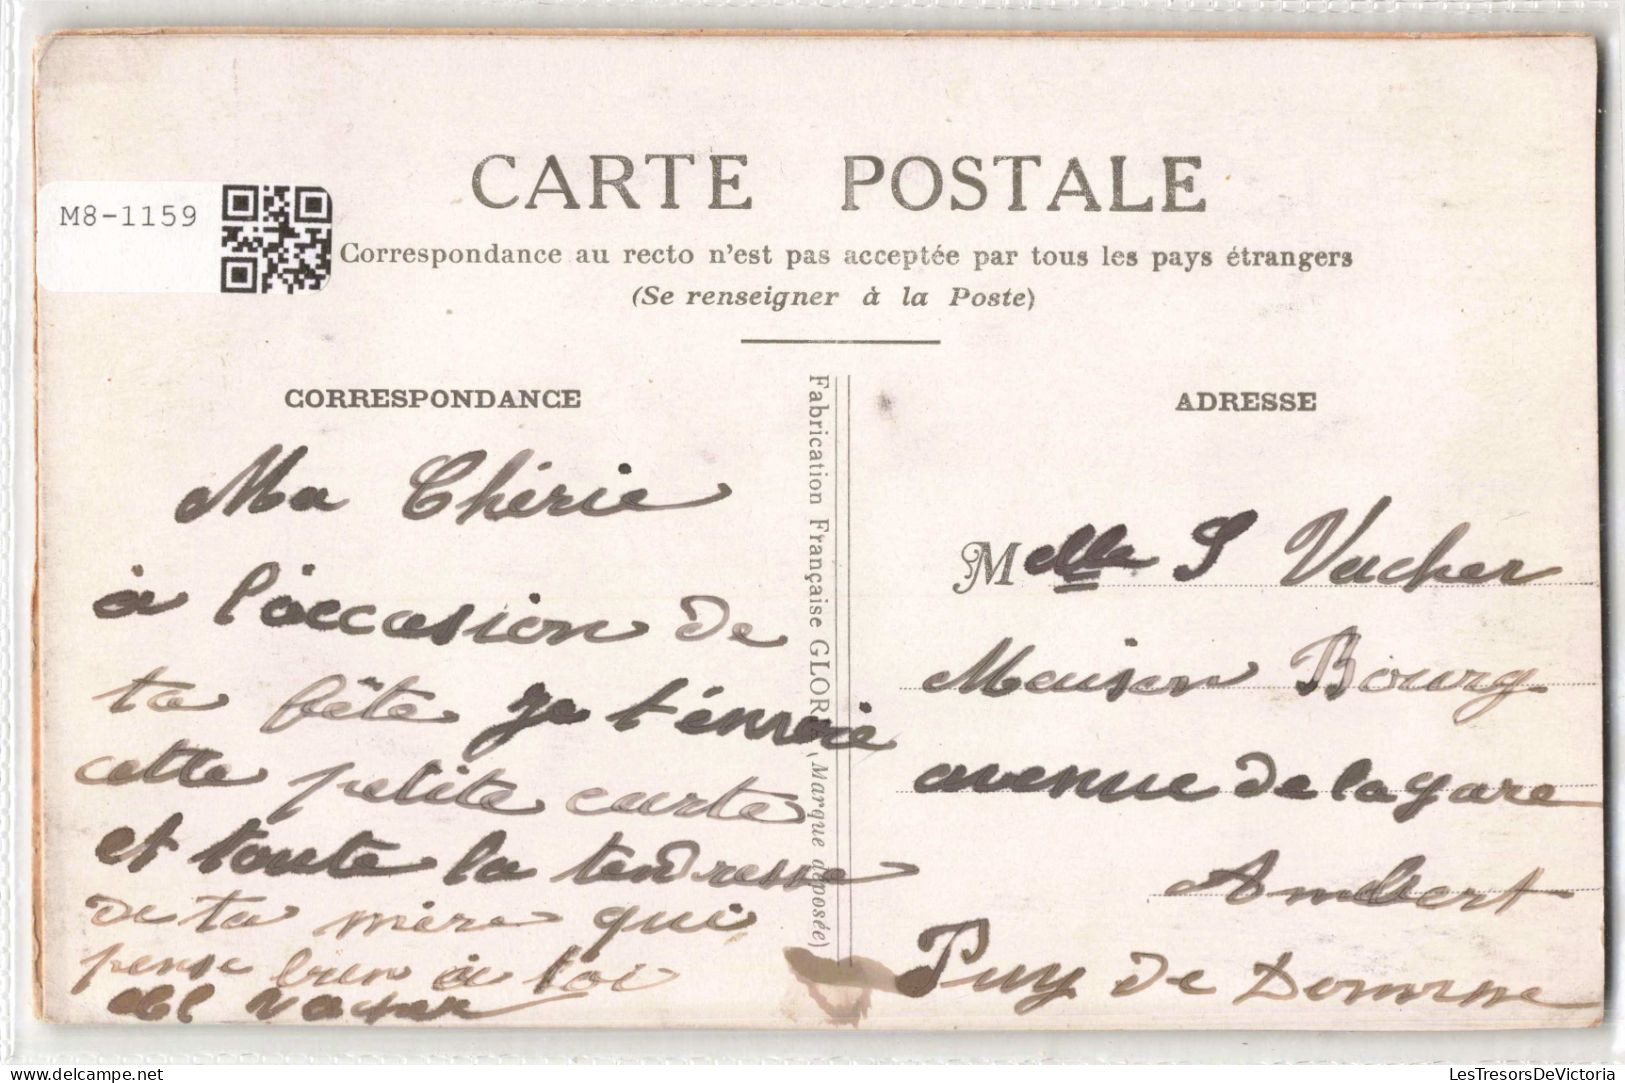 CARTE POSTALE
M8-1159
Correspondance au recto n'est pas acceptée par tous les pays étrangers
(Se renseigner à la Poste)
CORRESPONDANCE
Ma Chérie
à l'òccasion de
ta fête je t'énvoie
cette petite carte
et toute la tendresse
de ta mère qui
pense bien à toi
Vacher
Fabrication Française GLORIA (Marque déposée)
ADRESSE
Melle S Vacher
Maison Bourg
avenue de la gare
Ambert
Puy de Domme
delcampe.net
LesTresorsDeVictoria